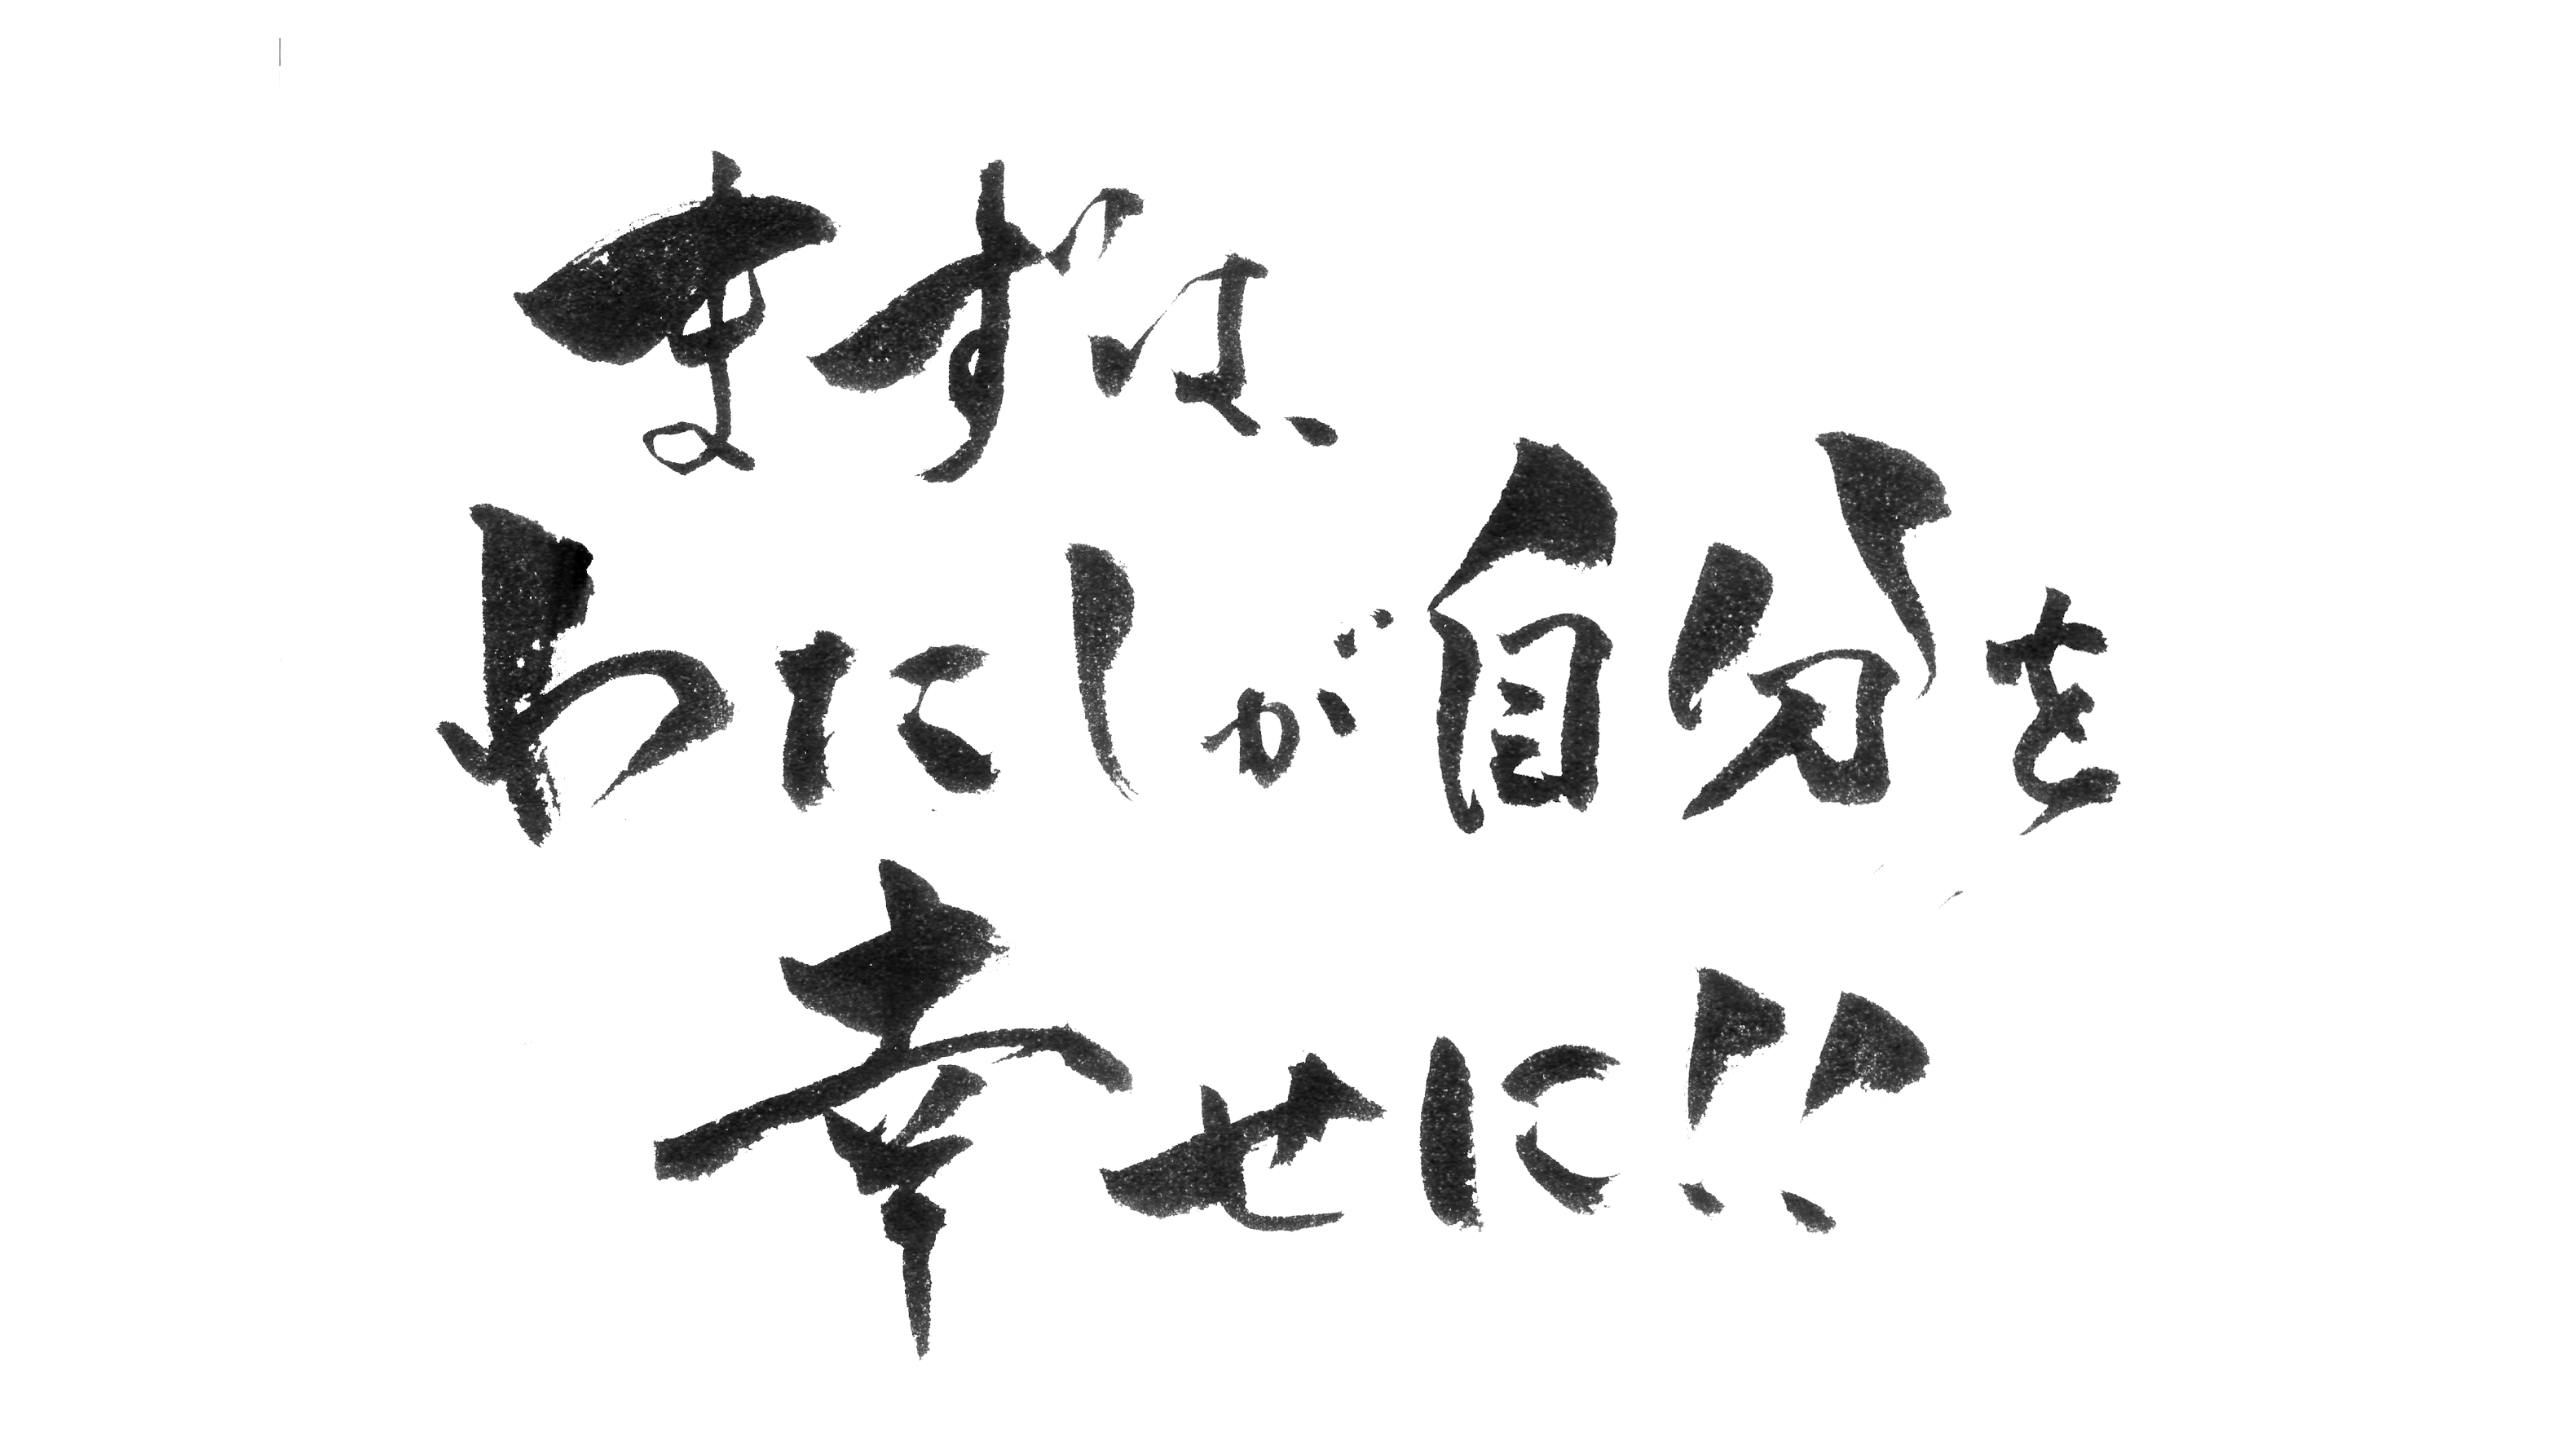 まずは、
わたしが自分を
幸せに!!